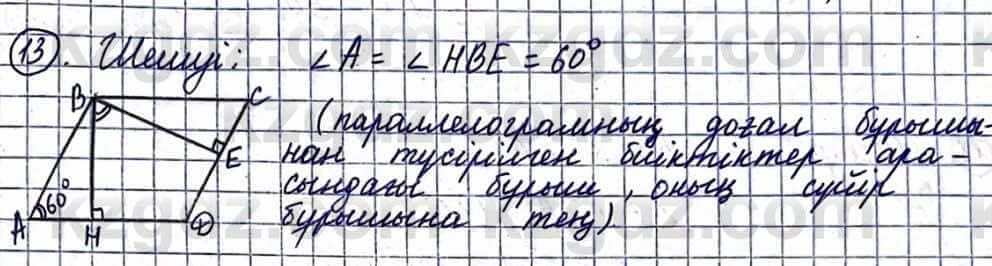 13. Шешуі: ∠A = ∠HBE = 60°
(параллелограмның доғал бұрышы-
нан түсірілген биіктіктер ара-
сындағы бұрыш, оның сүйір
бұрышына тең)
B C
E
60°
A H D
kzgaz.com